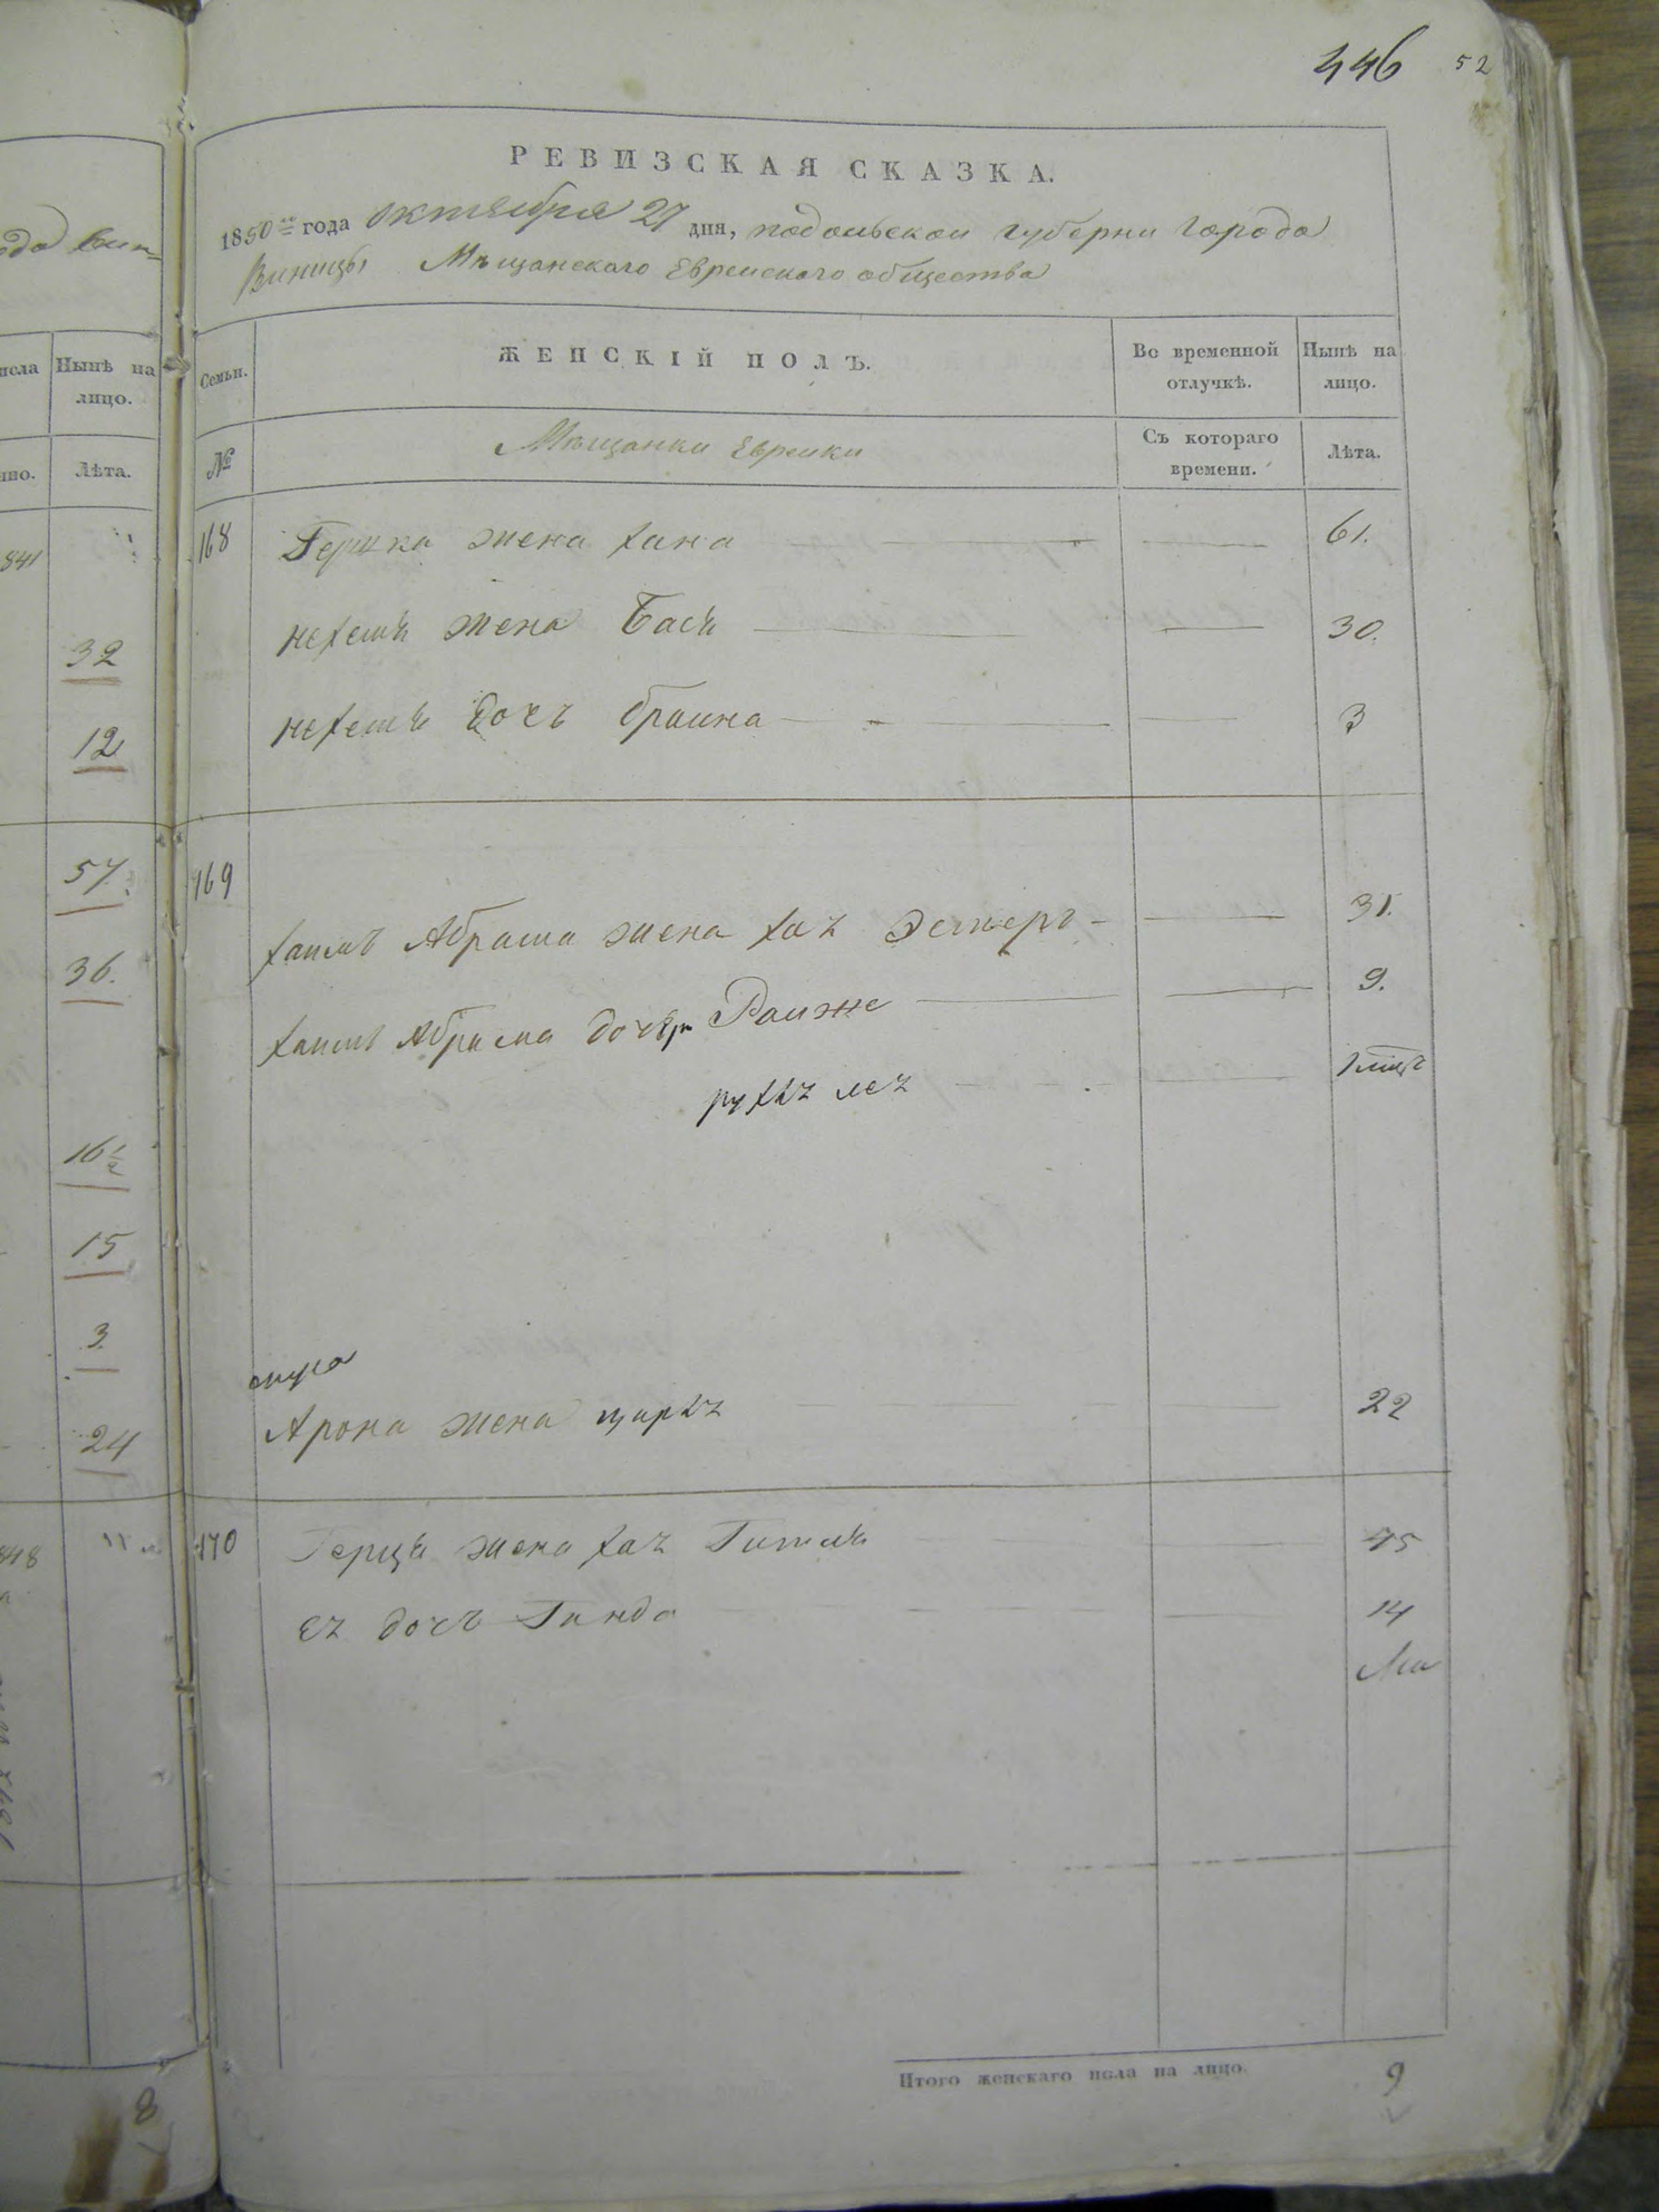 446 52
РЕВИЗСКАЯ СКАЗКА.
1850 го года октября 27 дня, подольской губерни города
Виницы Мѣщанскаго Еврейскаго общества
Семьи.
ЖЕНСКІЙ ПОЛЪ.
Во временной отлучкѣ.
Нынѣ на лицо.
№
Мѣщанки Еврейки
Съ котораго времени.
Лѣта.
168 Гершка жена хана 61.
жена Бася 30.
дочь браина 3
169
хаимъ Абрама жена хая Эстеръ 31.
хаимъ Абрама дочери Раиже 9.
рухля лея
Арона жена 22
170 Герца жена хая Гитля 45
Ея дочь Гинда 14
Итого женскаго пола на лицо. 9
ода вин=
исла
Нынѣ на лицо.
нно.
Лѣта.
841
32
12
57.
36.
16 1/2
15
3.
24
848
8